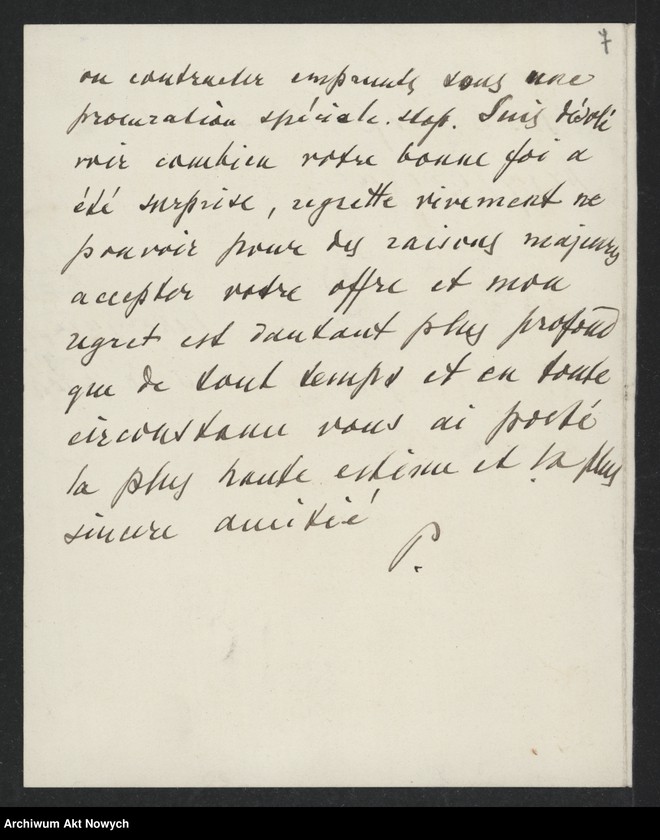 7
ou contracter emprunts sous une
procuration spéciale. stop. Suis désolé
voir combien votre bonne foi a
été surprise, regrette vivement ne
pouvoir pour des raisons majeures
accepter votre offre et mon
regret est dautant plus profond
que de tout temps et en toute
circonstance vous ai porté
la plus haute estime et la plus
sincere amitié
P.
Archiwum Akt Nowych